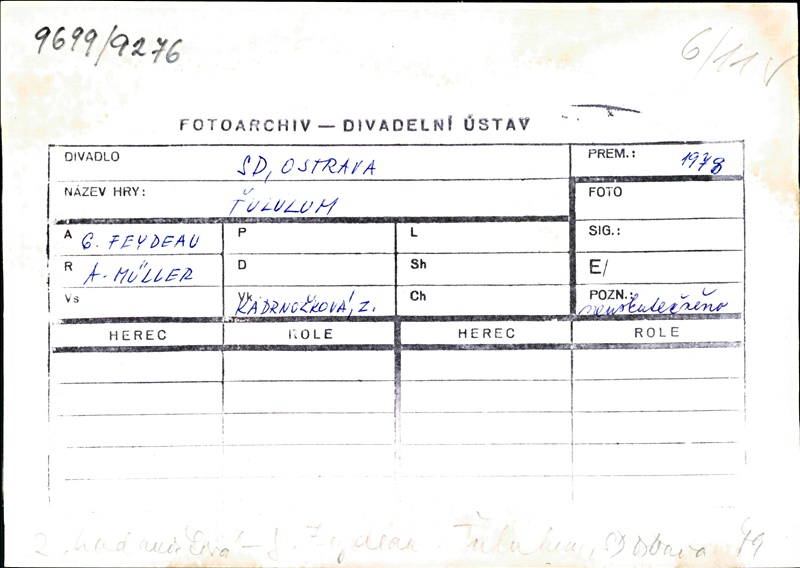 9699/9276
6/11
FOTOARCHIV — DIVADELNÍ ÚSTAV
DIVADLO SD, OSTRAVA PREM.: 1978
NÁZEV HRY: ŤULULUM FOTO
A G. FEYDEAU P L SIG.:
R A. MÜLLER D Sh E/
Vs Vk KADRNOŽKOVÁ, Z. Ch POZN.: neuskutečněno
HEREC ROLE HEREC ROLE